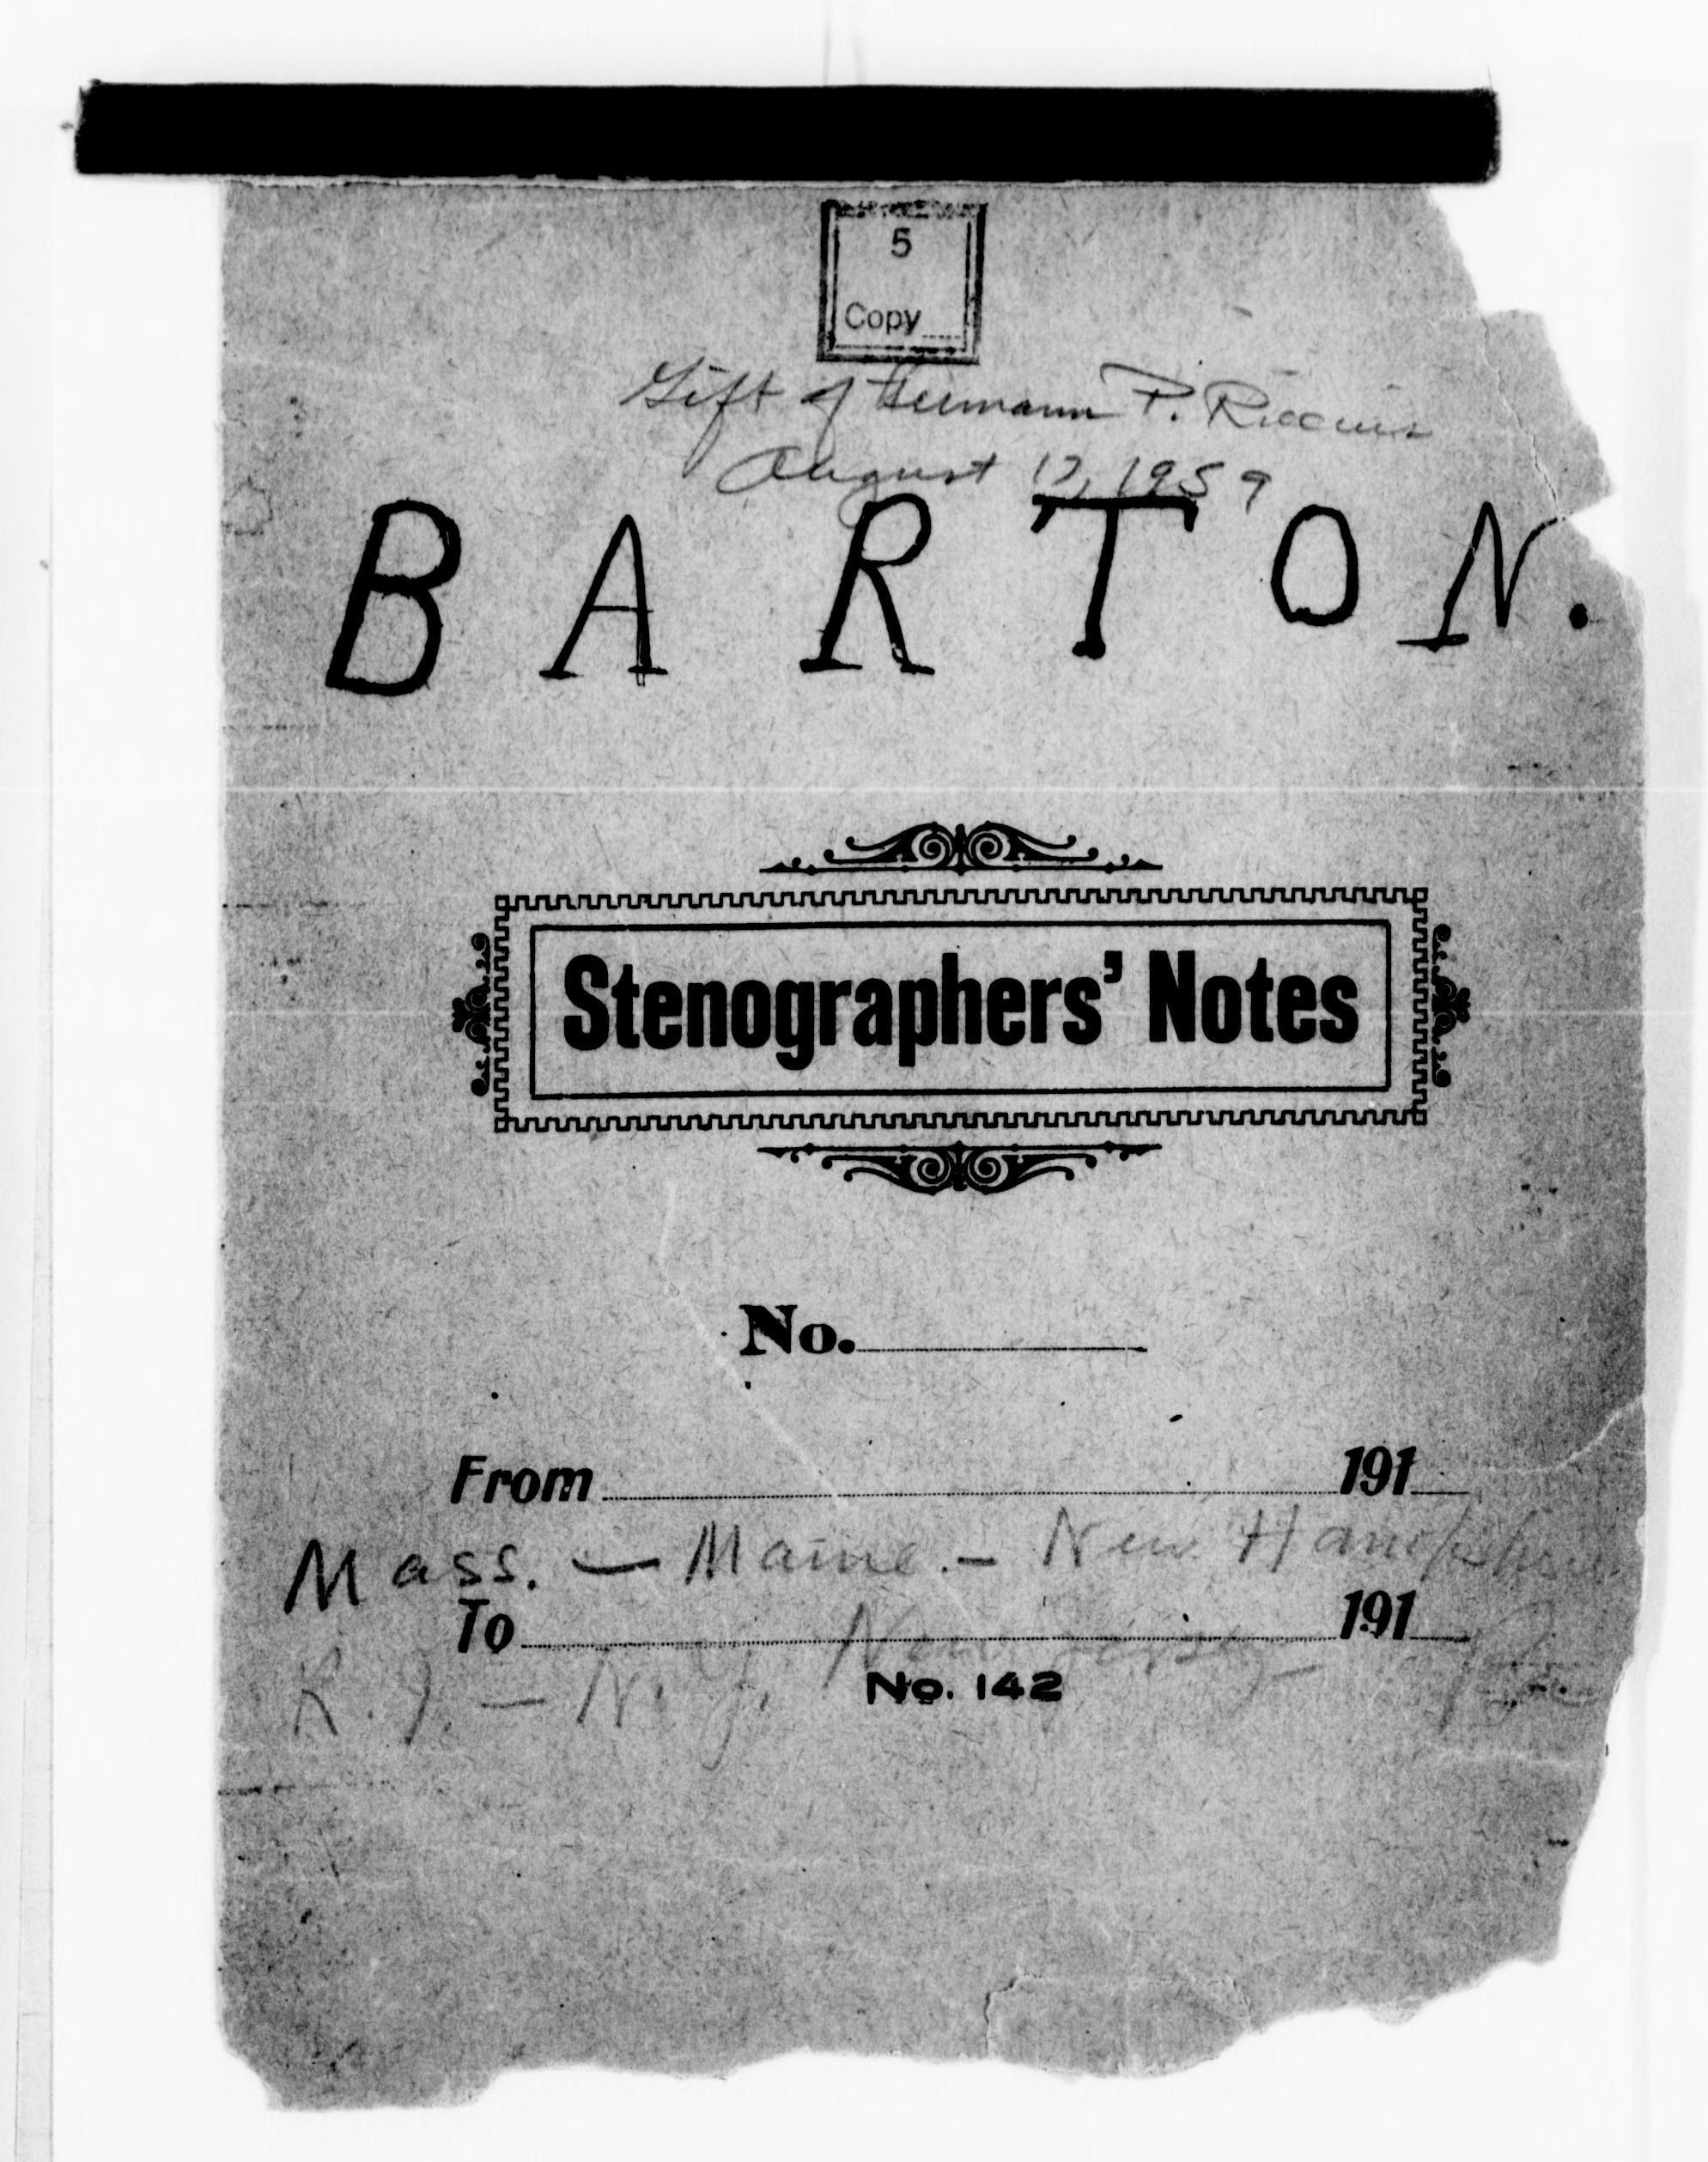 5
Copy
Gift of Hermann P. Riccius
August 17, 1959
BARTON.
Stenographers' Notes
No.
From 191
Mass. — Maine. — New Hampshire
To 191
R. I. — N. Y. New Jersey
No. 142